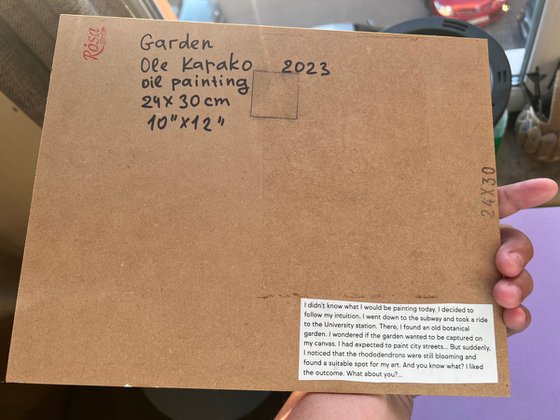 Rosa
Garden
Ole Karako 2023
oil painting
24x30cm
10"x12"
24X30
I didn't know what I would be painting today. I decided to
follow my intuition. I went down to the subway and took a ride
to the University station. There, I found an old botanical
garden. I wondered if the garden wanted to be captured on
my canvas. I had expected to paint city streets... But suddenly,
I noticed that the rhododendrons were still blooming and
found a suitable spot for my art. And you know what? I liked
the outcome. What about you?...